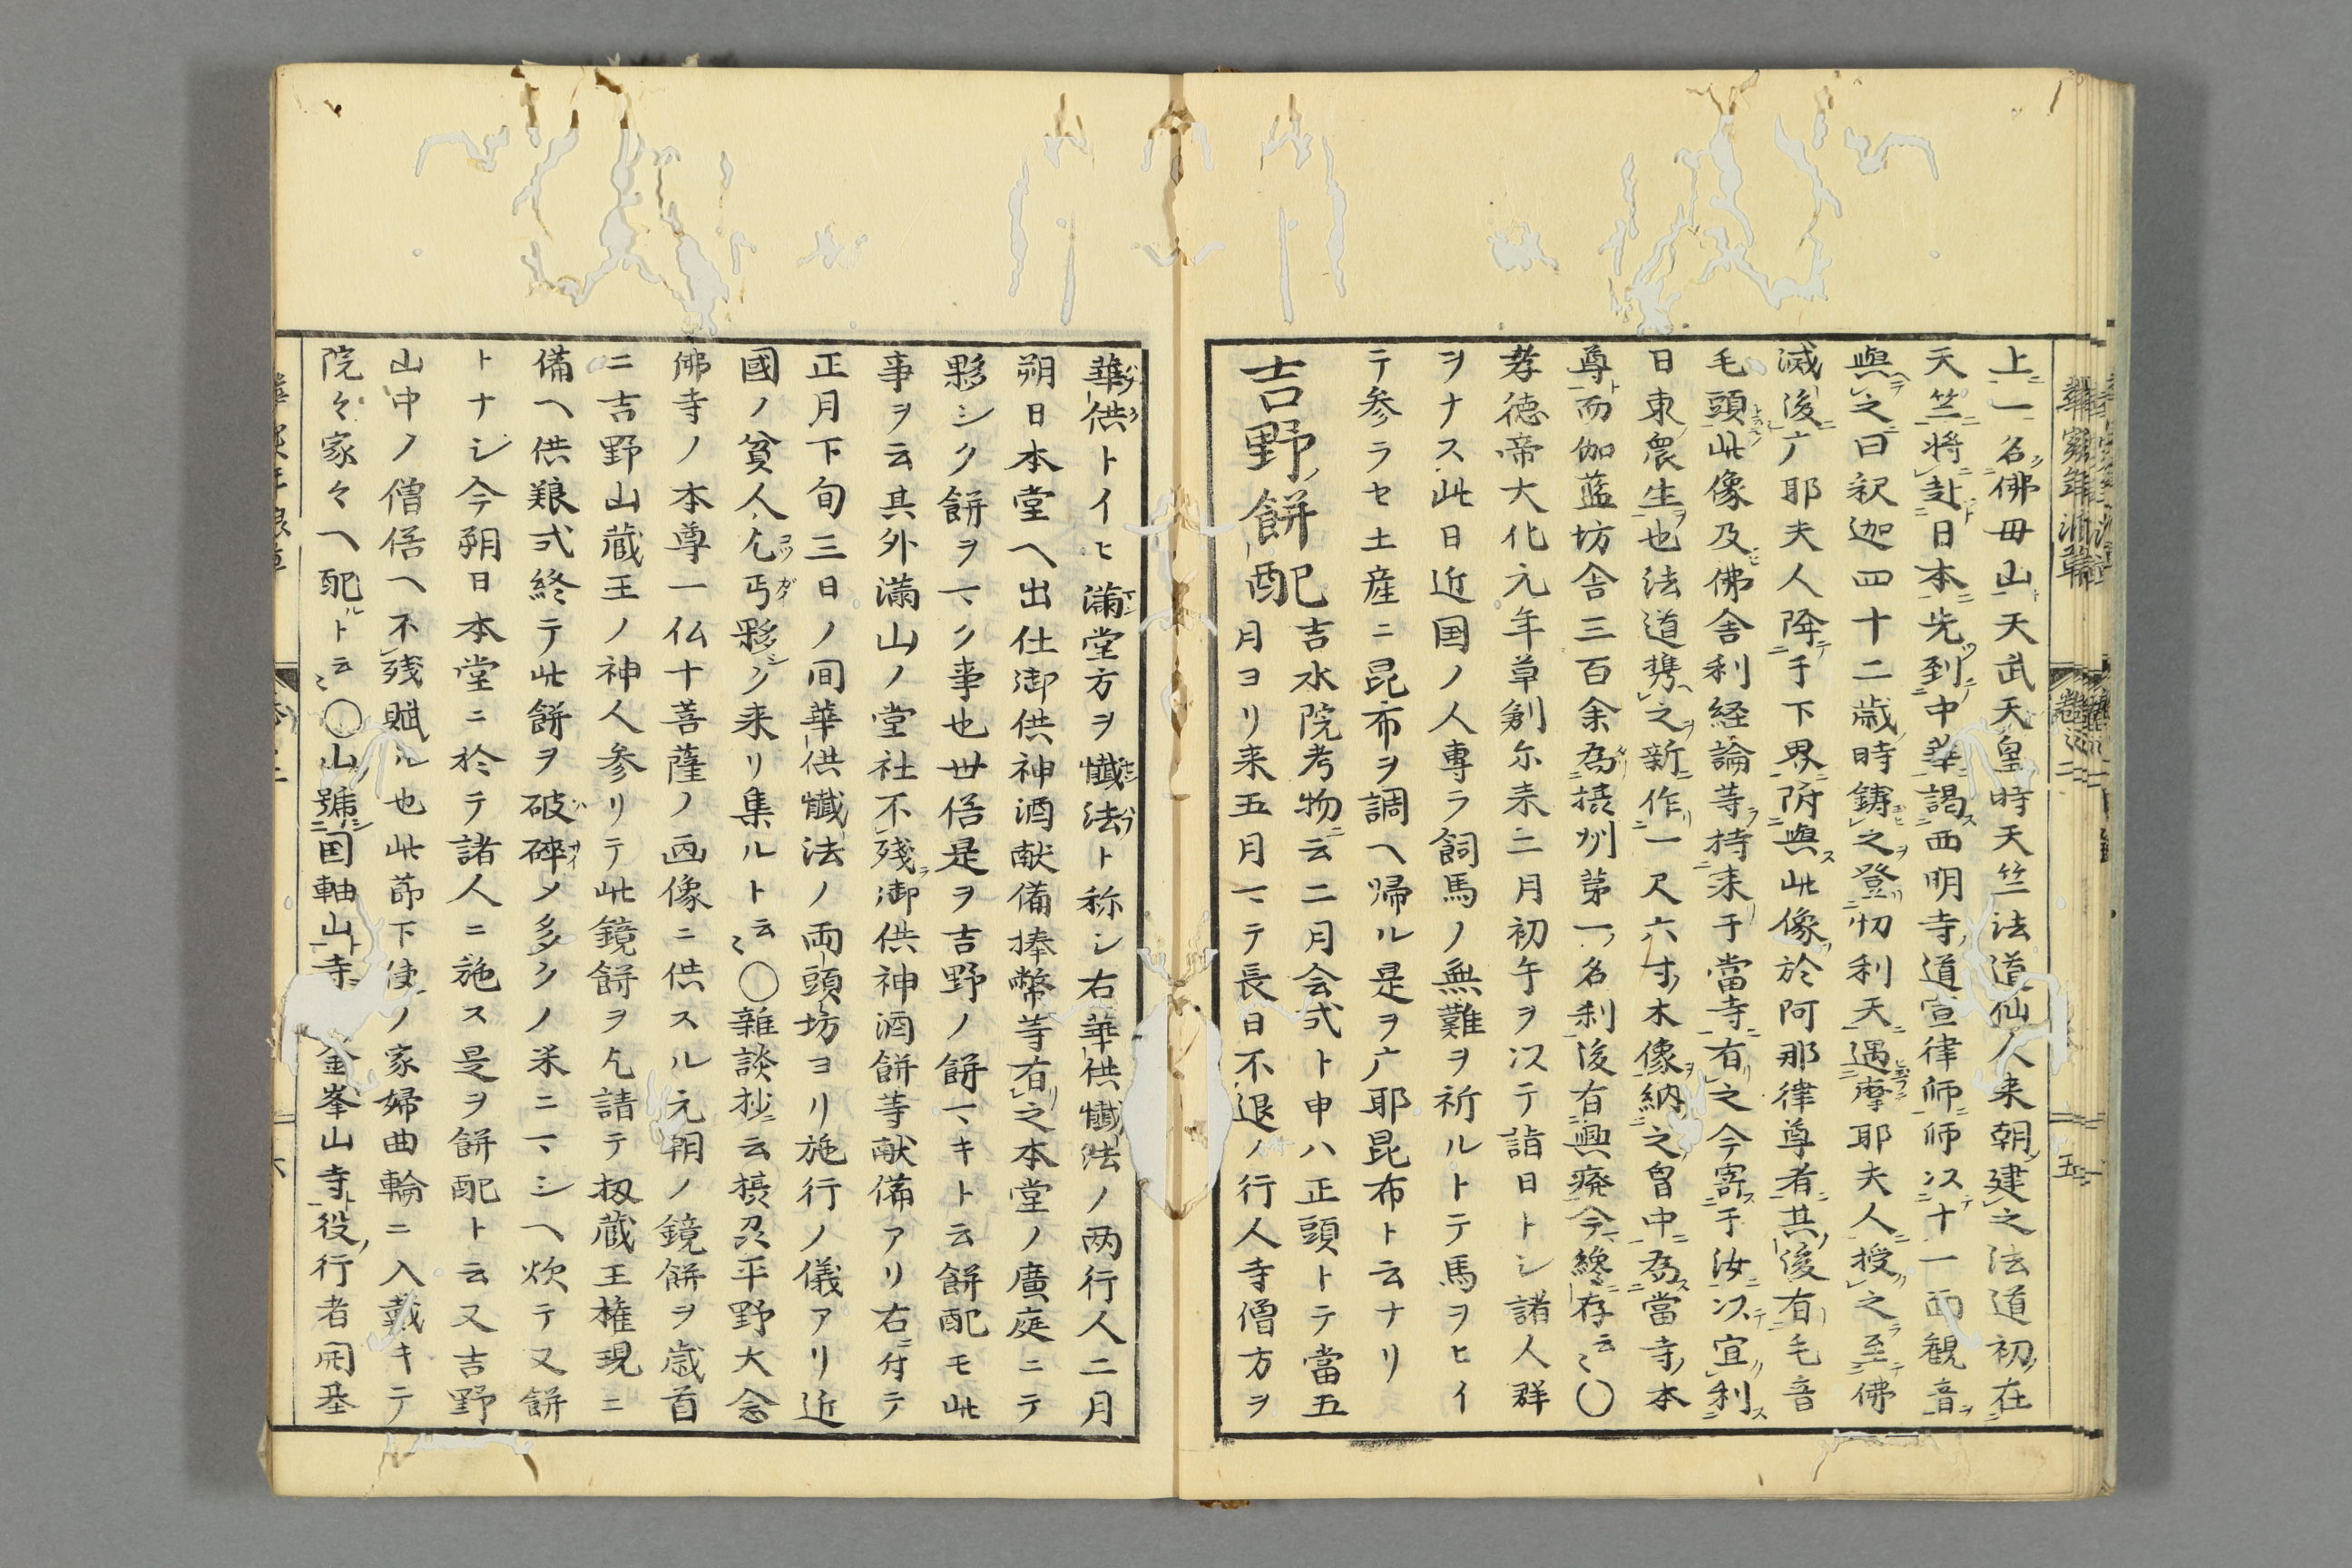 上一名佛母山天武天皇時天竺法道仙人来朝建之法道初在
天竺将赴日本先到中華謁西明寺道宣律師師以十一面観音
與之曰釈迦四十二歳時鋳之登忉利天遇摩耶夫人授之至佛
滅後广耶夫人降于下界附與此像於阿那律尊者其後有毛音
毛頭此像及佛舎利経論等持来于當寺有之今寄于汝以宜利
日東衆生也法道携之新作一尺六寸木像納之曽中為當寺本
尊而伽藍坊舎三百余為摂州第一名刹後有興廃今纔存云〻〇
孝徳帝大化元年草創尓来二月初午ヲ以テ詣日トシ諸人群
ヲナス此日近国ノ人専ラ飼馬ノ無難ヲ祈ルトテ馬ヲヒイ
テ参ラセ土産ニ昆布ヲ調ヘ帰ル是ヲ广耶昆布ト云ナリ
吉野餅配
吉水院考物云二月会式ト申ハ正頭トテ當五
月ヨリ来五月マテ長日不退ノ行人寺僧方ヲ
華供トイヒ満堂方ヲ懺法ト称シ右華供懺法ノ両行人二月
朔日本堂ヘ出仕御供神酒献備捧幣等有之本堂ノ廣庭ニテ
夥シク餅ヲマク事也世俗是ヲ吉野ノ餅マキト云餅配モ此
事ヲ云其外満山ノ堂社不残御供神酒餅等献備アリ右ニ付テ
正月下旬三日ノ間華供懺法ノ両頭坊ヨリ施行ノ儀アリ近
國ノ貧人乞丐夥シク来リ集ルト云〻〇雑談抄云摂忍平野大念
佛寺ノ本尊一仏十菩薩ノ画像ニ供スル元朝ノ鏡餅ヲ歳首
ニ吉野山蔵王ノ神人参リテ此鏡餅ヲ乞請テ扨蔵王権現ニ
備ヘ供粮式終テ此餅ヲ破砕メ多クノ米ニマシヘ炊テ又餅
トナシ今朔日本堂ニ於テ諸人ニ施ス是ヲ餅配ト云又吉野
山中ノ僧俗ヘ不残賦ル也此節下使ノ家婦曲輪ニ入戴キテ
院々家々ヘ配ルト云〻〇山號国軸山寺金峯山寺役行者開基
華實年浪草
巻二
五